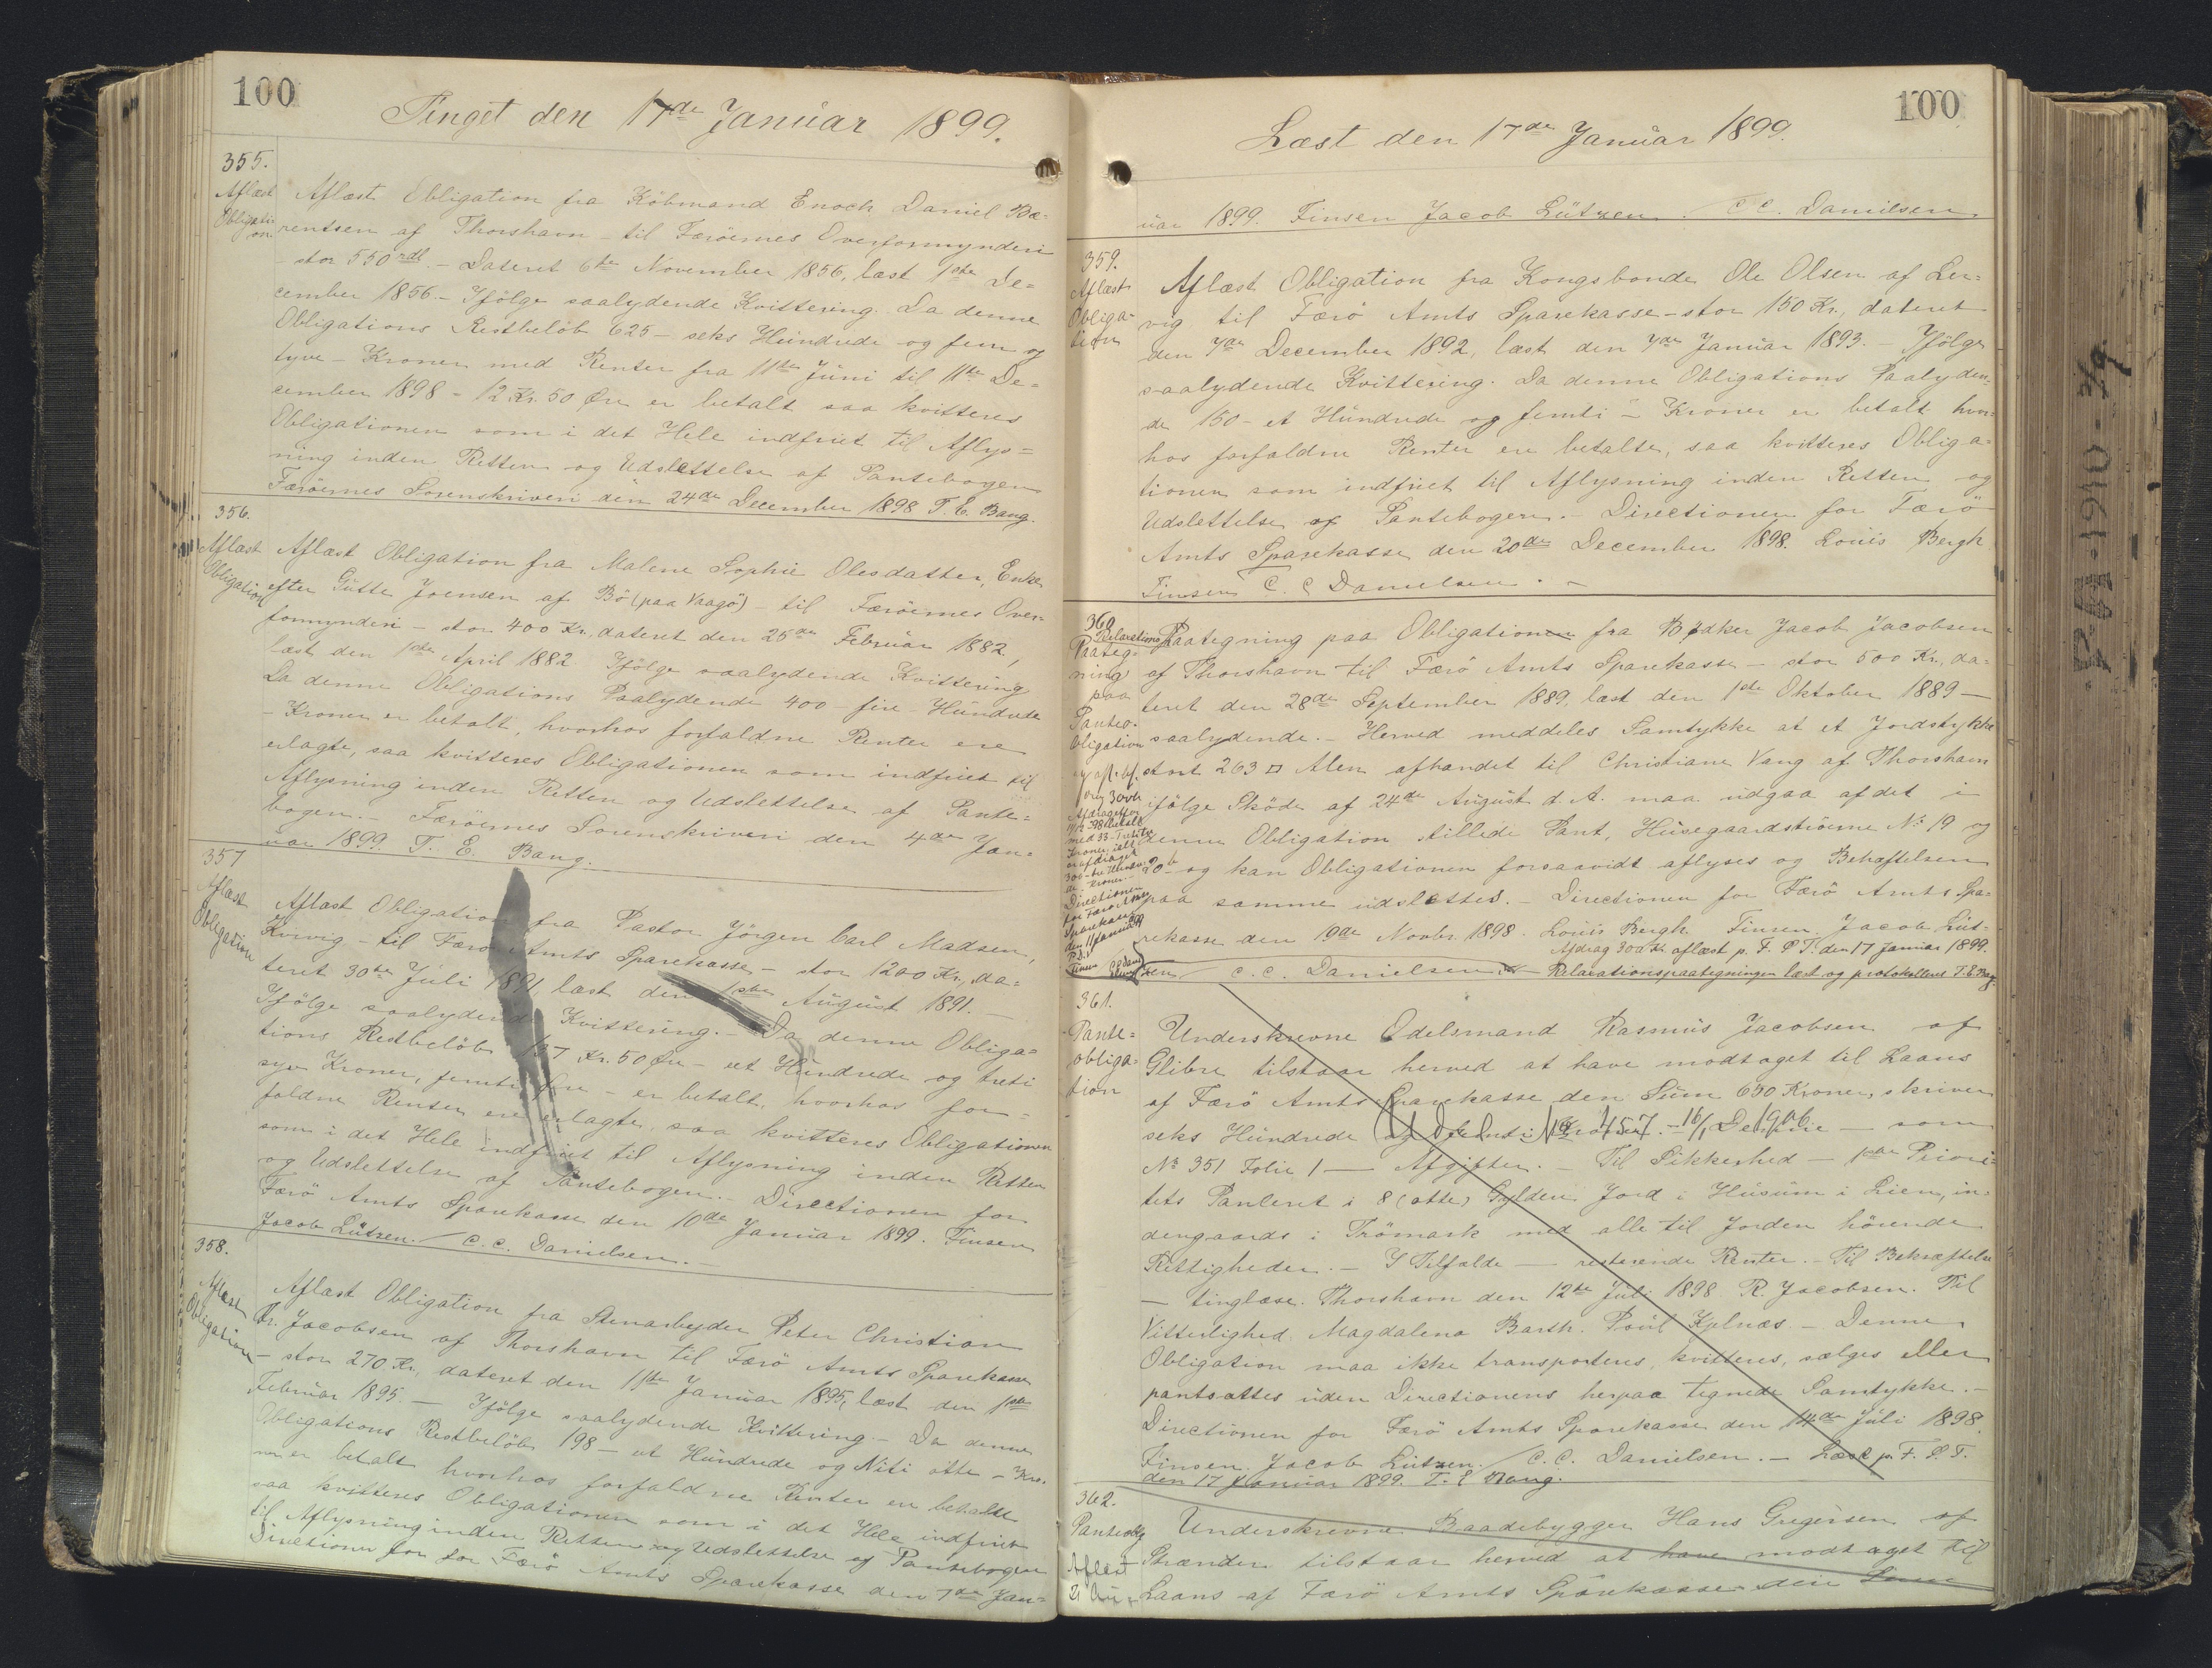 100
Tinget den 17de Januar 1899.
355.
Aflæst Obligation
Aflæst Obligation fra Köbmand Enoch Daniel Bæ=
rentsen af Thorshavn - til Færöernes Overformynderi
- stor 550 rdl. - Dateret 6te November 1856, læst 1ste De=
cember 1856. - Ifölge saalydende Kvittering. Da denne
Obligations Restbelöb 625 - seks Hundrede og fem og
tyve - Kroner med Renter fra 11te Juni til 11te De=
cember 1898 - 12 Kr. 50 Øre er betalt saa kvitteres
Obligationen som i det Hele indfriet til Aflys=
ning inden Retten og Udslettelse af Pantebogen
Færöernes Sorenskriveri den 24de December 1898 T. E. Bang.
356.
Aflæst Obligation
Aflæst Obligation fra Malene Sophie Olesdatter, Enke
efter Gutte Joensen af Bö (paa Vaagö) - til Færöernes Over=
formynderi - stor 400 Kr., dateret den 25de Februar 1882,
læst den 1ste April 1882. Ifölge saalydende Kvittering
Da denne Obligations Paalydende 400 - fire - Hundrede
- Kroner er betalt, hvorhos forfaldne Renter ere
erlagte, saa kvitteres Obligationen som indfriet til
Aflysning inden Retten og Udslettelse af Pante=
bogen. - Færöernes Sorenskriveri den 4de Jan=
uar 1899. T. E. Bang.
357
Aflæst Obligation
Aflæst Obligation fra Pastor Jörgen Carl Madsen,
Kvivig - til Færö Amts Sparekasse - stor 1200 Kr., da=
teret 30te Juli 1891, læst den 1ste August 1891. -
Ifölge saalydende Kvittering. - Da denne Obliga=
tions Restbelöb 137 Kr. 50 Øre - et Hundrede og treti
syv Kroner, femti Øre - er betalt, hvorhos for=
faldne Renter ere erlagte, saa kvitteres Obligationen
som i det Hele indfriet til Aflysning inden Retten
og Udslettelse af Pantebogen. - Directionen for
Færö Amts Sparekasse den 10de Januar 1899. Finsen
Jacob Lützen. / C. C. Danielsen. -
358.
Aflæst Obligation
Aflæst Obligation fra Stenarbejder Peter Christian
Fr. Jacobsen af Thorshavn til Færö Amts Sparekasse
- stor 270 Kr., dateret den 11te Januar 1895, læst den 1ste
Februar 1895. - Ifölge saalydende Kvittering - Da denne
Obligations Restbelöb 198 - et Hundrede og Niti otte - Kro.
ner er betalt hvorhos forfaldne Renter er betalte
saa kvitteres Obligationen som i det Hele indfriet
til Aflysning inden Retten og Udslettelse af Pantebogen
Directionen for for Færö Amts Sparekasse den 7de Jan=
100
Læst den 17de Januar 1899.
uar 1899. Finsen Jacob Lützen. / C. C. Danielsen.
359.
Aflæst Obliga- tion
Aflæst Obligation fra Kongsbonde Ole Olsen af Ler=
vig til Færö Amts Sparekasse - stor 150 Kr., dateret
den 7de December 1892, læst den 7de Januar 1893. - Ifölge
saalydende Kvittering. Da denne Obligations Paalyden=
de 150 - et Hundrede og femti - Kroner er betalt hvor=
hos forfaldne Renter ere betalte, saa kvitteres Obliga=
tionen som indfriet til Aflysning inden Retten og
Udslettelse af Pantebogen. - Directionen for Færö
Amts Sparekasse den 20de December 1898. Louis Bergh
Finsen C. C. Danielsen. -
360
Relaxations
Paateg- ning paa Panteo- bligation
Afdraget
Directionen for Færö Amts Sparekasse den 11 Januar 99
Paategning paa Obligationen fra Bødker Jacob Jacobsen
af Thorshavn til Færö Amts Sparekasse - stor 500 Kr., da=
teret den 28de September 1889, læst den 1ste Oktober 1889 -
saalydende. - Herved meddeles Samtykke at et Jordstykke
stort 263 □ Alen afhændet til Christiane Vang af Thorshavn
ifölge Sköde af 24de August d. A. maa udgaa af det i
denne Obligation stillede Pant, Husegaardströerne No 19 og
20 b og kan Obligationen forsaavidt aflyses og Behæftelsen
paa samme udslettes. - Directionen for Færö Amts Spa=
rekasse den 19de Novbr. 1898. Louis Bergh Finsen. Jacob Lüt=
zen / C. C. Danielsen.
Afdrag 300 Kr. aflæst p. F. P. T. den 17 Januar 1899.
Relaxationspaategningen læst og protokolleret T. E. Bang.
361.
Pante= obliga= tion
Underskrevne Odelsmand Rasmus Jacobsen af
Glibre tilstaar herved at have modtaget til Laans
af Færö Amts Sparekasse den Sum 650 Kroner, skriver
seks Hundrede og femti Kroner. - - som
No 457. - 16/1 1906
No 351 Folie 1 - Afgifter. - Til Sikkerhed - 1ste Priori=
tets Panteret i 8 (otte) Gylden Jord i Husum i Lien, in=
dengaards i Trömark med alle til Jorden hörende
Rettigheder. - I Tilfælde - resterende Renter. - Til Bekræftelse
- tinglæse. Thorshavn den 12te Juli 1898. R. Jacobsen. Til
Vitterlighed: Magdalena Barth. Poul Kjelnæs. - Denne
Obligation maa ikke transporteres, kvitteres, sælges eller
pantsættes uden Directionens herpaa tegnede Samtykke. -
Directionen for Færö Amts Sparekasse den 14de Juli 1898.
Finsen. Jacob Lützen. / C. C. Danielsen. - Læst p. F. P. T.
den 17 Januar 1899. T. E. Bang.
362.
Panteobl
Aflæst
Underskrevne Baadebygger Hans Gregersen af
Strænder tilstaar herved at have modtaget til
Laans af Færö Amts Sparekasse den Sum